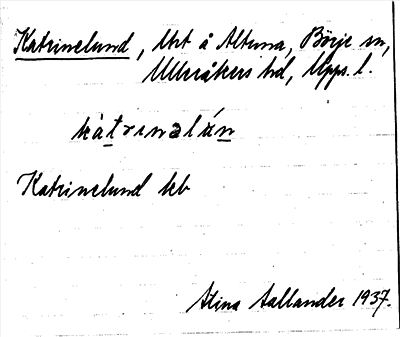 Katrinelund, Utr å Altuna, Börje sn,
Ulleråkers hd, Upps. l.
kàtrinəlún
Katrinelund kb
Stina Sallander 1937.